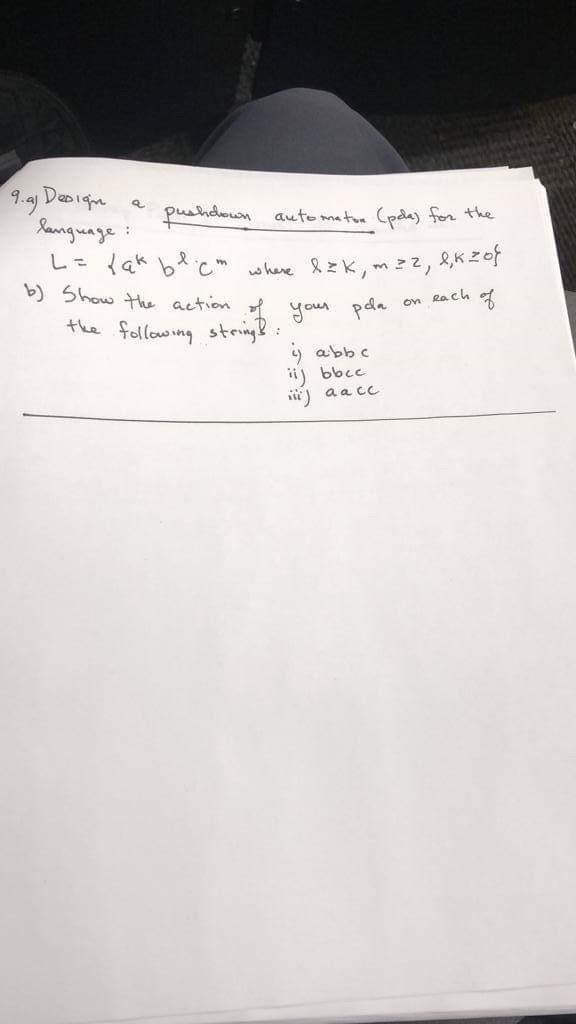 9.a) Design a pushdown automaton (pda) for the
language :
L = {a^k b^l c^m where l ≥ k, m ≥ 2, l,k ≥ 0}
b) Show the action of your pda on each of
the following strings :
i) abbc
ii) bbcc
iii) aacc